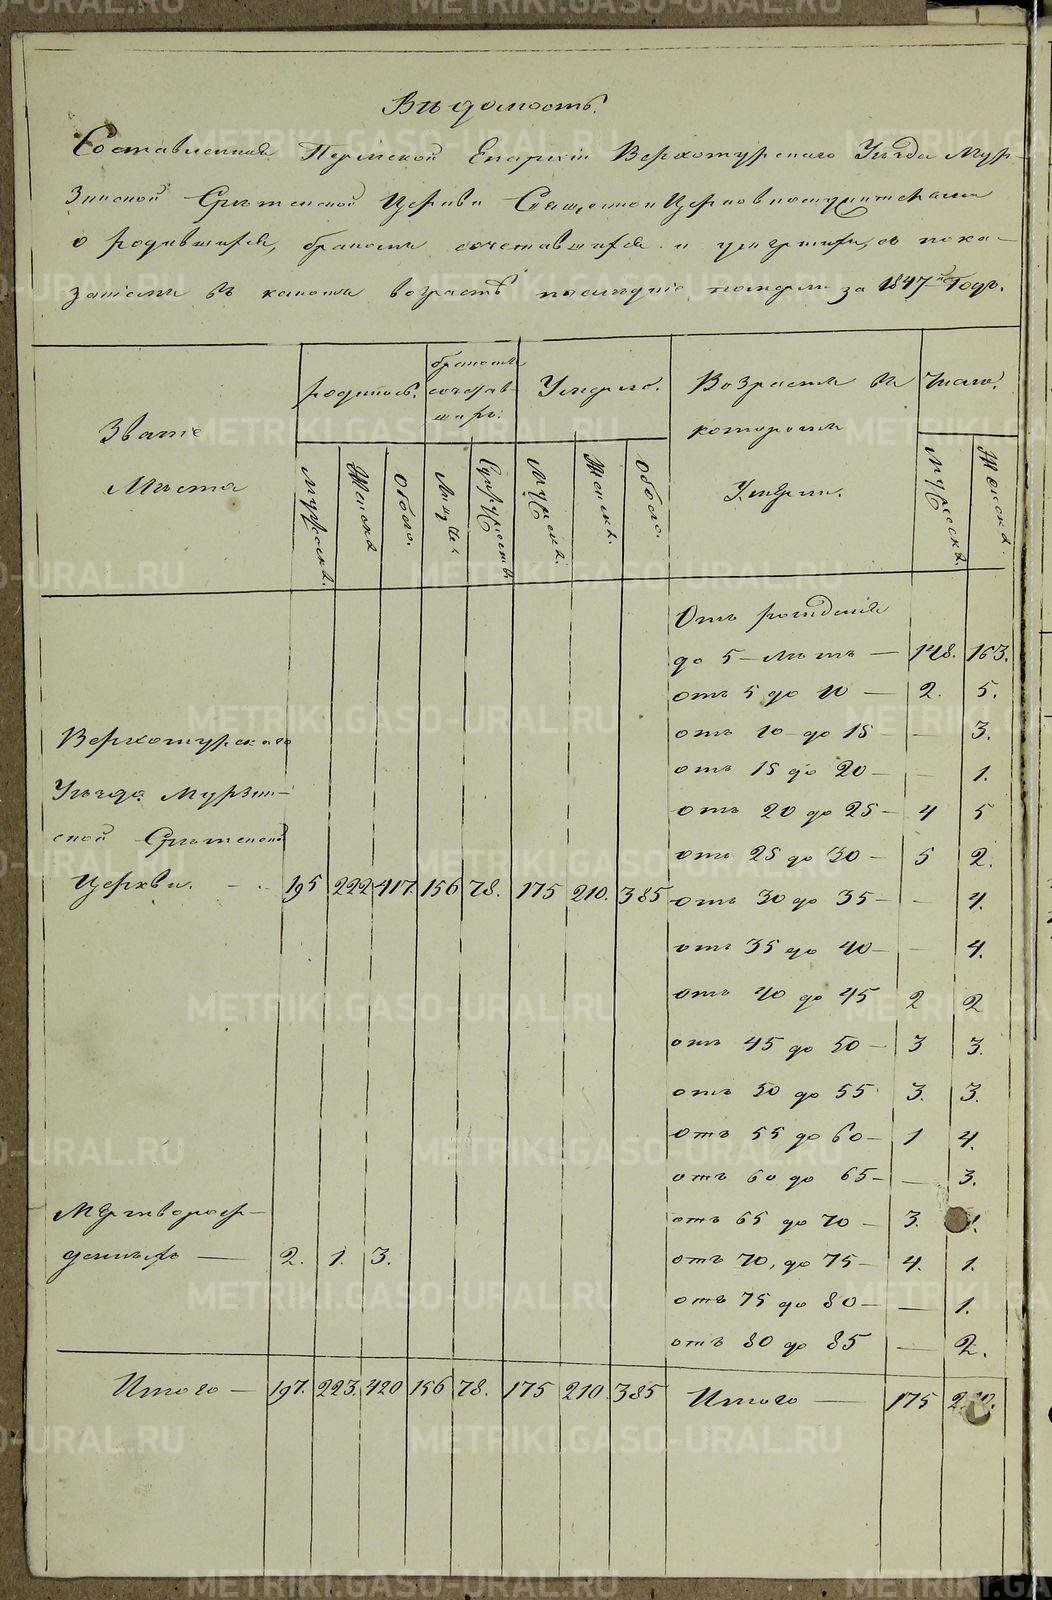 Вѣдомость.
Составленная Пермской Епархіи Верхотурскаго Уѣзда Мур-
зинской Срѣтенской Церкви Священноцерковнослужителями
о родившихся, бракомъ сочетавшихся и умершихъ, съ пока-
заніемъ въ какомъ возрастѣ послѣдніе померли за 1847й Годъ.
Званіе
Мѣста
родилось.
бракомъ
сочетав-
шихъ.
Умерло.
Возрастъ въ
которомъ
Умерли.
Число.
Мужеска.
Женска
Обоего.
Лицъ
Супружествъ
Мужеска.
Женска.
Обоего.
Мужеска.
Женска.
Отъ рожденія
до 5 — лѣтъ — 148. 163.
отъ 5 до 10 — 2. 5.
отъ 10 до 15 — — 3.
отъ 15 до 20 — — 1.
отъ 20 до 25 — 4 5
отъ 25 до 30 — 5 2.
отъ 30 до 35 — — 4.
отъ 35 до 40 — — 4.
отъ 40 до 45 2 2
отъ 45 до 50 — 3 3.
отъ 50 до 55 3. 3.
отъ 55 до 60 — 1 4.
отъ 60 до 65 — — 3.
отъ 65 до 70 — 3.
отъ 70, до 75 — 4. 1.
отъ 75 до 80 — — 1.
отъ 80 до 85 — 2.
Верхотурскаго
Уѣзда Мурзин-
ской Срѣтенской
Церкви. — 195 222 417. 156 78. 175 210. 385
Мертворож-
денныхъ — 2. 1. 3.
Итого — 197. 223. 420 156 78. 175 210. 385
Итого — 175 210.
METRIKI.GASO-URAL.RU